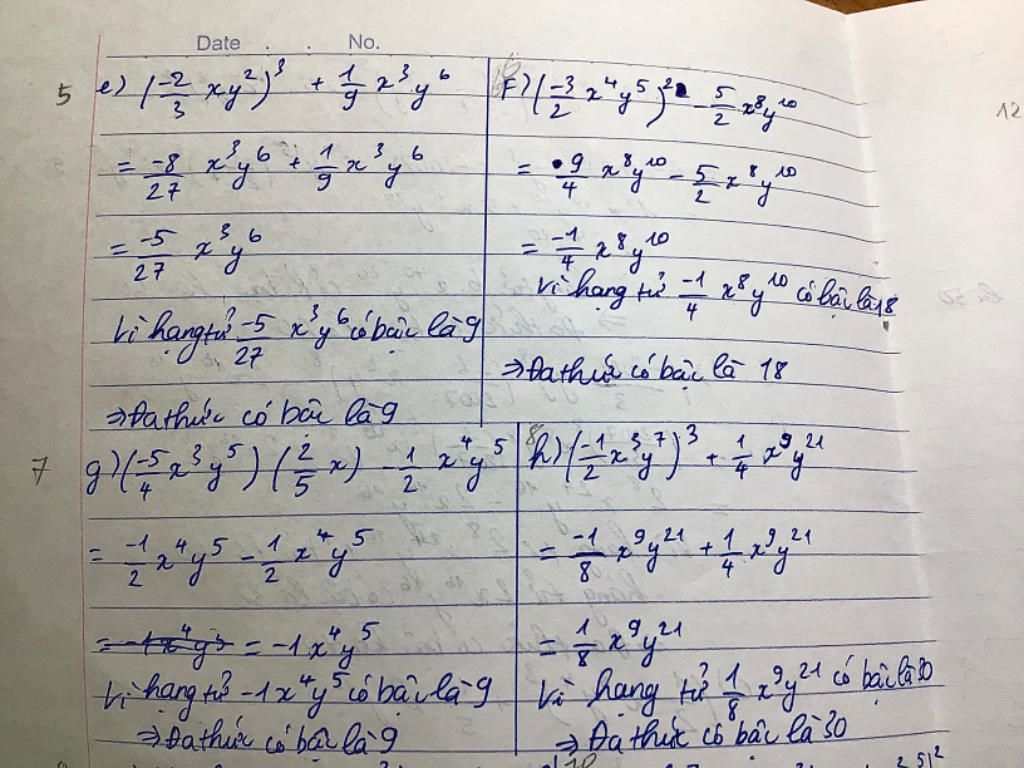 Date . . No.
5 e) (-2/3 xy²)³ + 1/9 x³y⁶
= -8/27 x³y⁶ + 1/9 x³y⁶
= -5/27 x³y⁶
Vì hạng tử -5/27 x³y⁶ có bậc là 9
⇒ Đa thức có bậc là 9
f) (-3/2 x⁴y⁵)² - 5/2 x⁸y¹⁰
= 9/4 x⁸y¹⁰ - 5/2 x⁸y¹⁰
= -1/4 x⁸y¹⁰
Vì hạng tử -1/4 x⁸y¹⁰ có bậc là 18
⇒ Đa thức có bậc là 18
7 g) (-5/4 x³y⁵) (2/5 x) - 1/2 x⁴y⁵
= -1/2 x⁴y⁵ - 1/2 x⁴y⁵
= -1x⁴y⁵
Vì hạng tử -1x⁴y⁵ có bậc là 9
⇒ Đa thức có bậc là 9
8 h) (-1/2 x³y⁷)³ + 1/4 x⁹y²¹
= -1/8 x⁹y²¹ + 1/4 x⁹y²¹
= 1/8 x⁹y²¹
Vì hạng tử 1/8 x⁹y²¹ có bậc là 30
⇒ Đa thức có bậc là 30
12